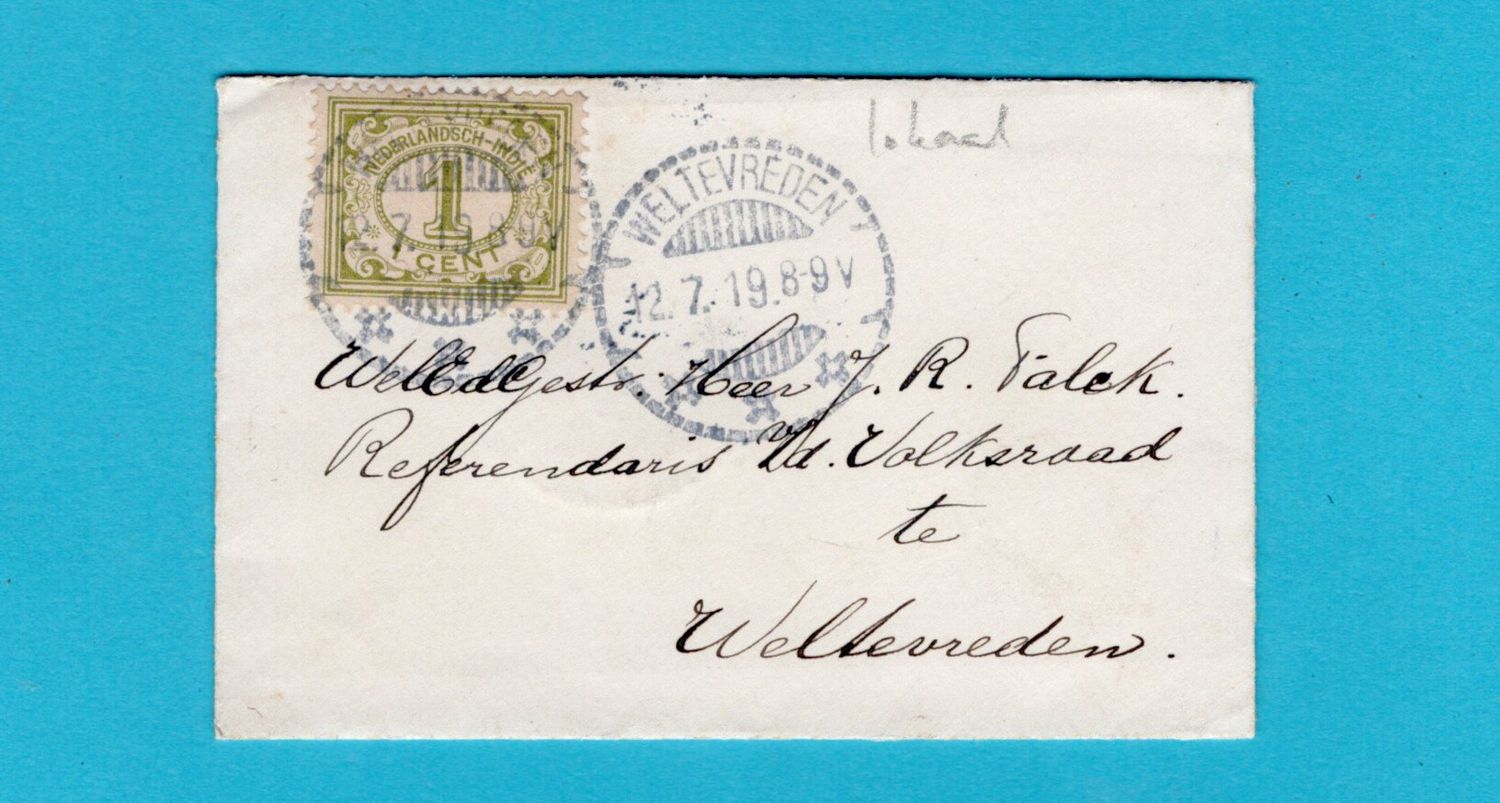 lokaal
NEDERLANDSCH-INDIË
1
CENT
7.19.8-9V
WELTEVREDEN
12.7.19.8-9V
WelEdGestr. Heer J. R. Falck.
Referendaris v/d. Volksraad
te
Weltevreden.